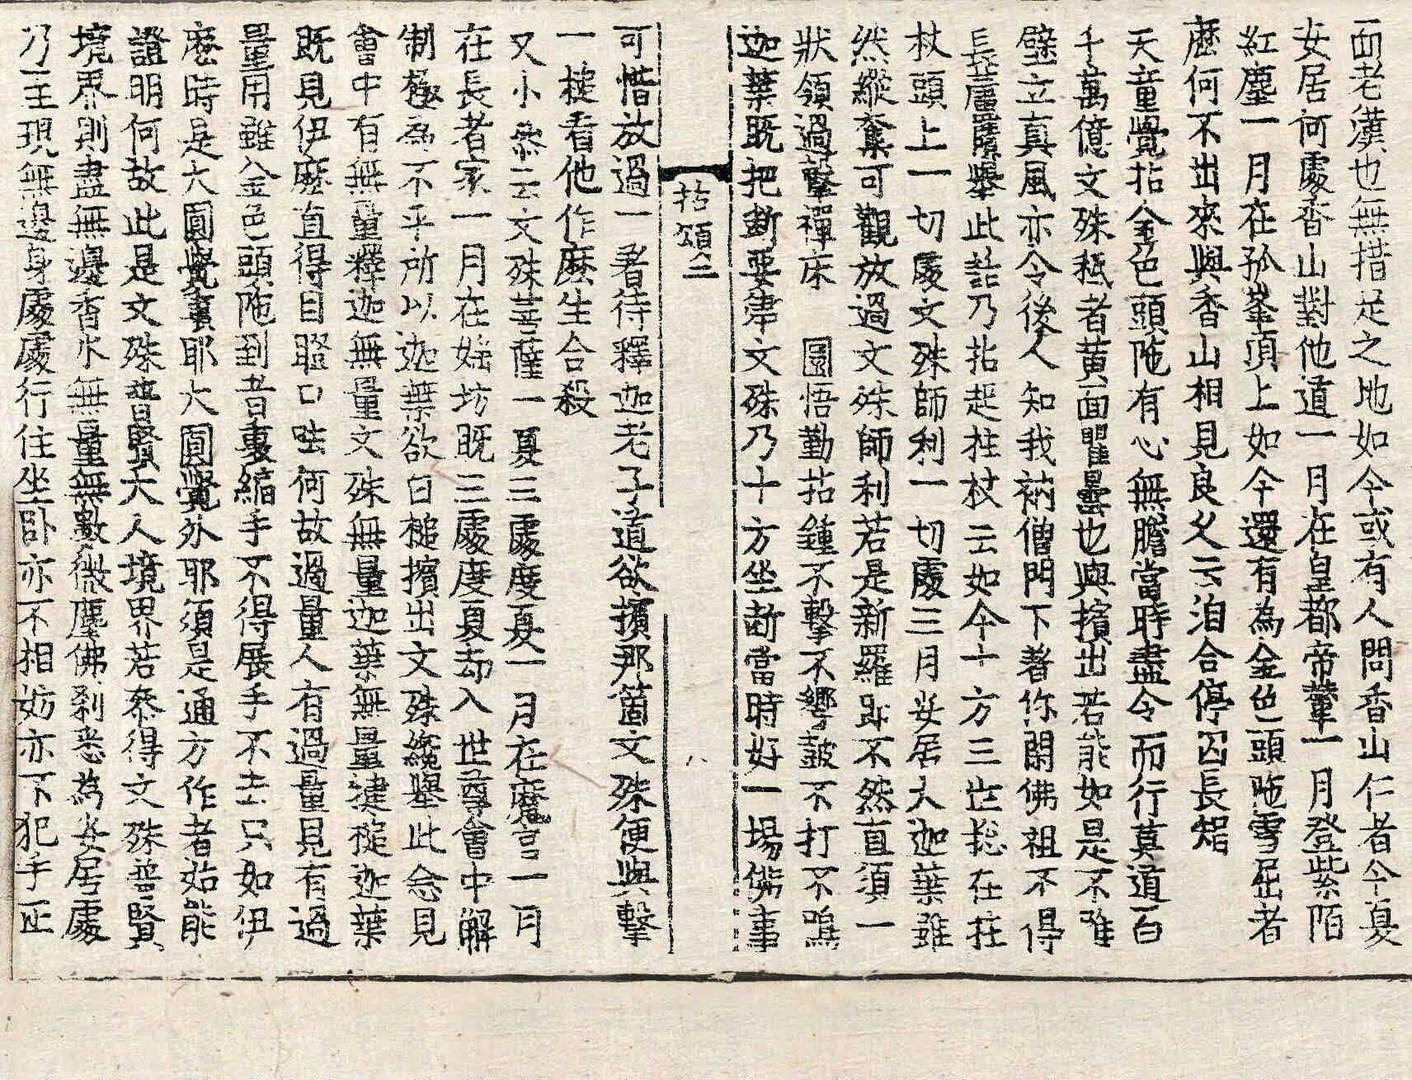 面老漢也無措足之地如今或有人問香山仁者今夏
安居何處香山對他道一月在皇都帝輦一月登紫陌
紅塵一月在孤峯頂上如今還有為金色頭陁雪屈者
麽何不出來與香山相見良久云洎合停囚長智
天童覺拈金色頭陁有心無膽當時盡令而行莫道百
千萬億文殊秖者黄面瞿曇也與擯出若能如是不唯
壁立真風亦令後人知我衲僧門下著你閑佛祖不得
長蘆賾擧此話乃拈起柱杖云如今十方三世捴在柱
杖頭上一切處文殊師利一切處三月安居大迦葉雖
然縱奪可觀放過文殊師利若是新羅即不然直須一
狀領過擊禪床 圜悟勤拈鍾不擊不響皷不打不鳴
迦葉旣把斷要津文殊乃十方坐斷當時好一場佛事
拈頌二 八
可惜放過一着待釋迦老子道欲擯那箇文殊便與擊
一槌看他作麽生合殺
又小叅云文殊菩薩一夏三處度夏一月在魔宫一月
在長者家一月在婬坊旣三處度夏却入世尊會中解
制極為不平所以迦葉欲白槌擯出文殊纔擧此念見
會中有無量釋迦無量文殊無量迦葉無量揵槌迦葉
旣見伊麽直得目瞪口呿何故過量人有過量見有過
量用雖金色頭陁到者裏縮手不得展手不去只如伊
麽時是大圓覺裏耶大圓覺外耶須是通方作者始能
證明何故此是文殊普賢大人境界若叅得文殊普賢
境界則盡無邊香水無量無數微塵佛刹悉為安居處
乃至現無邊身處處行住坐卧亦不相妨亦不犯手正